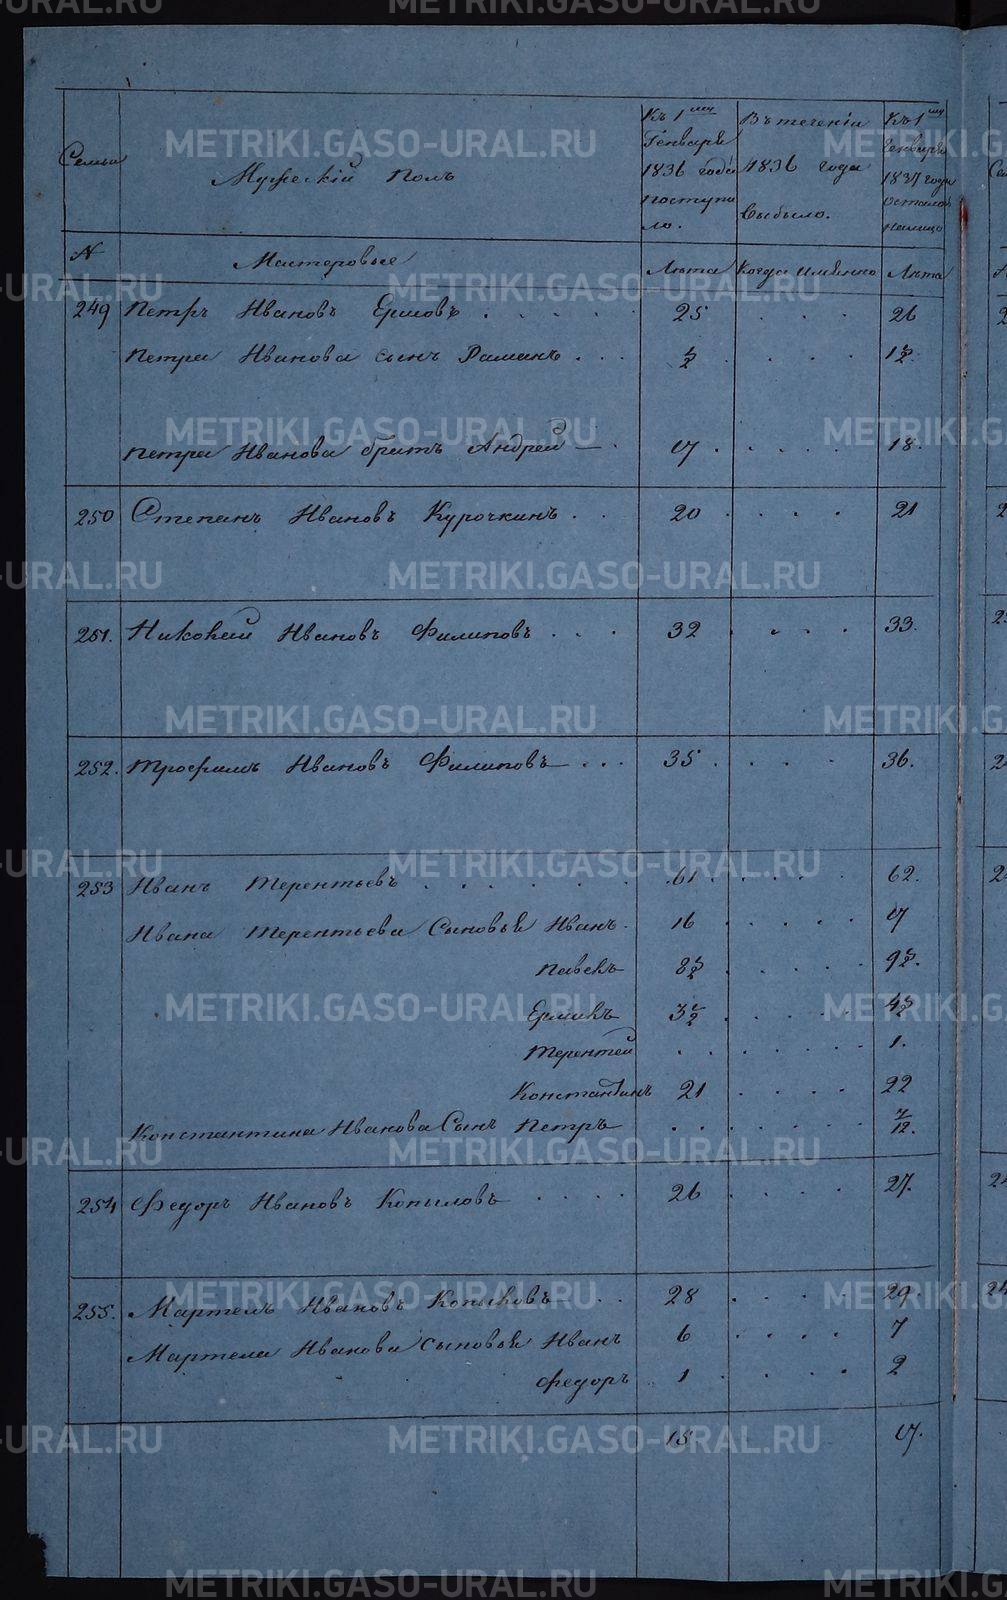 METRIKI.GASO-URAL.RU
Семьи
Мужескій Полъ
Къ 1му Генваря 1836 года поступило.
Въ теченіи 1836 года выбыло.
Къ 1му Генваря 1837 года осталось налицо
N Мастеровые Лѣта Когда именно Лѣта
249 Петръ Ивановъ Ершовъ . . . . . 25 . . . 26
Петра Иванова сынъ Раманъ . . . 5/2 . . . 1 5/2.
Петра Иванова братъ Андрей — . 17 . . . . 18.
250 Степанъ Ивановъ Курочкинъ . . 20 . . . . 21
251. Николай Ивановъ Филиповъ . . . 32 . . . . 33.
252. Трофимъ Ивановъ Филиповъ . . . 35 . . . . 36.
253 Иванъ Терентьевъ . . . . . . . 61 . . . . 62.
Ивана Терентьева Сыновья Иванъ . 16 . . . . 17
Павелъ 8 5/2 . . . . 9 5/2.
Ермилъ 3 5/2 . . . . 4 5/2
Терентей . . . . . . 1.
Константинъ 21 . . . . 22
Константина Иванова Сынъ Петръ . . . . . . 7/12.
254 Федоръ Ивановъ Копыловъ . . . . 26 . . . . 27.
255. Мартемъ Ивановъ Копыловъ . . 28 . . . . 29.
Мартема Иванова сыновья Иванъ 6 . . . . 7
Федоръ 1 . . . . 2
15 17.